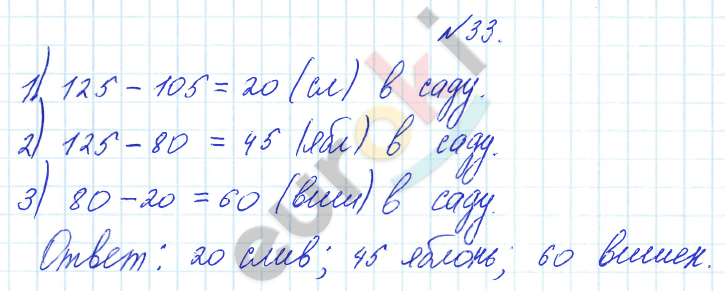 №33.
1) 125 - 105 = 20 (сл) в саду.
2) 125 - 80 = 45 (ябл) в саду.
3) 80 - 20 = 60 (виш) в саду.
Ответ: 20 слив; 45 яблонь; 60 вишен.
euroki